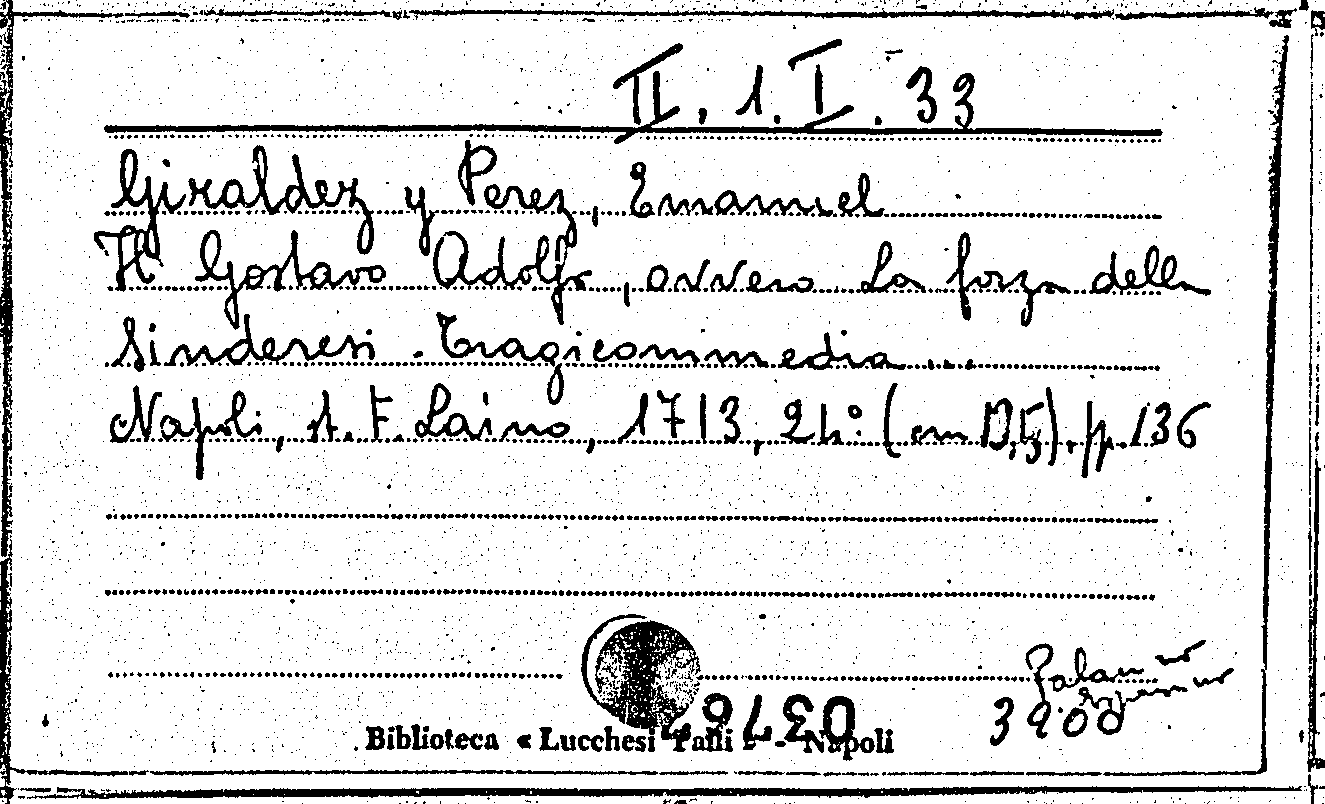 II. 1. I. 33
Giraldez y Perez, Emanuel
Il Gostavo Adolfo, ovvero La forza della
Sinderesi. Tragicommedia...
Napoli, st. F. Laino, 1713, 24°. (cm , pp. 136
3900
Biblioteca « Lucchesi Palli » - Napoli